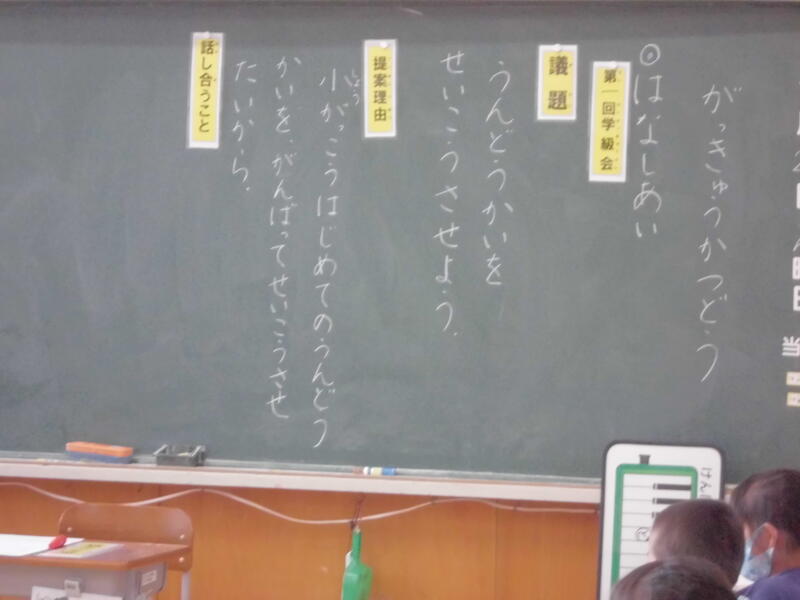 がっきゅうかつどう
◎はなしあい
第一回学級会
議題
うんどうかいを
せいこうさせよう。
提案理由
小がっこうはじめてのうんどう
しょう
かいを、がんばってせいこうさせ
たいから。
話し合うこと
当
けん